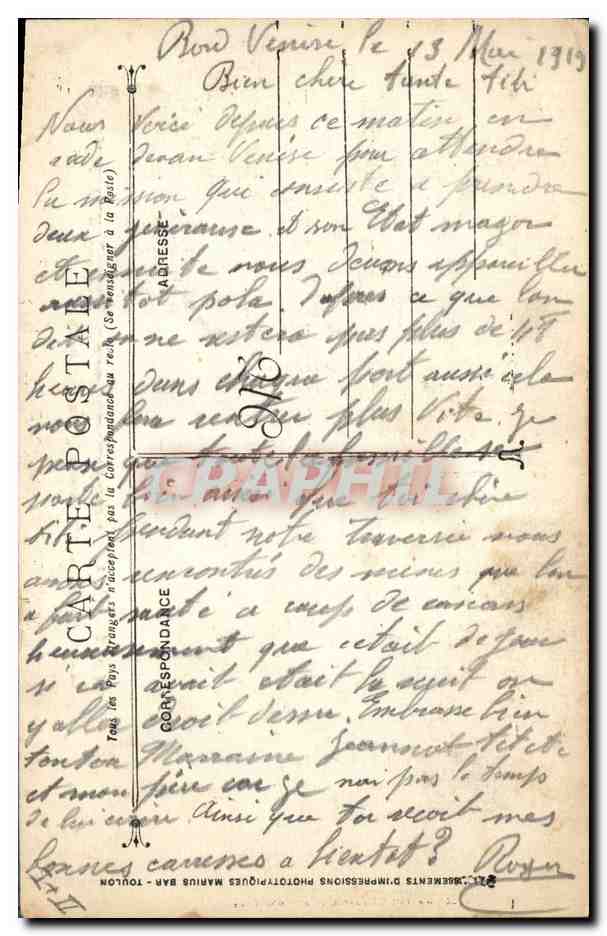 Bord Venise le 13 Mai 1919
Bien chère tante Titi
Nous voici depuis ce matin en
rade devan Venise pour attendre
la mission qui consiste a prendre
deux généraux et son Etat major
et ensuite nous devons appareiller
aussitot pola. Dapres ce que l'on
dit on ne restera pas plus de 48
heures dans chaque port aussi cela
nous fera rentrer plus vite. Je
pense que toute la famille se
porte bien ainsi que toi chère
titi. Pendant notre traversée nous
avons rencontrés des mines que l'on
a fait sauté a coup de canons
heureusement que cetait de jour
si ca avait etait la nuit on
y allait droit dessu. Embrasse bien
tonton Marraine Jeannot titi
et mon père car je nai pas le temps
de lui ecrire Ainsi que toi recoit mes
bonnes caresses a bientot? Roger
CARTE POSTALE
Tous les Pays étrangers n'acceptent pas la Correspondance au recto (Se renseigner à la Poste)
CORRESPONDANCE
ADRESSE
CPAPHIL
ISSEMENTS D'IMPRESSIONS PHOTOTYPIQUES MARIUS BAR - TOULON